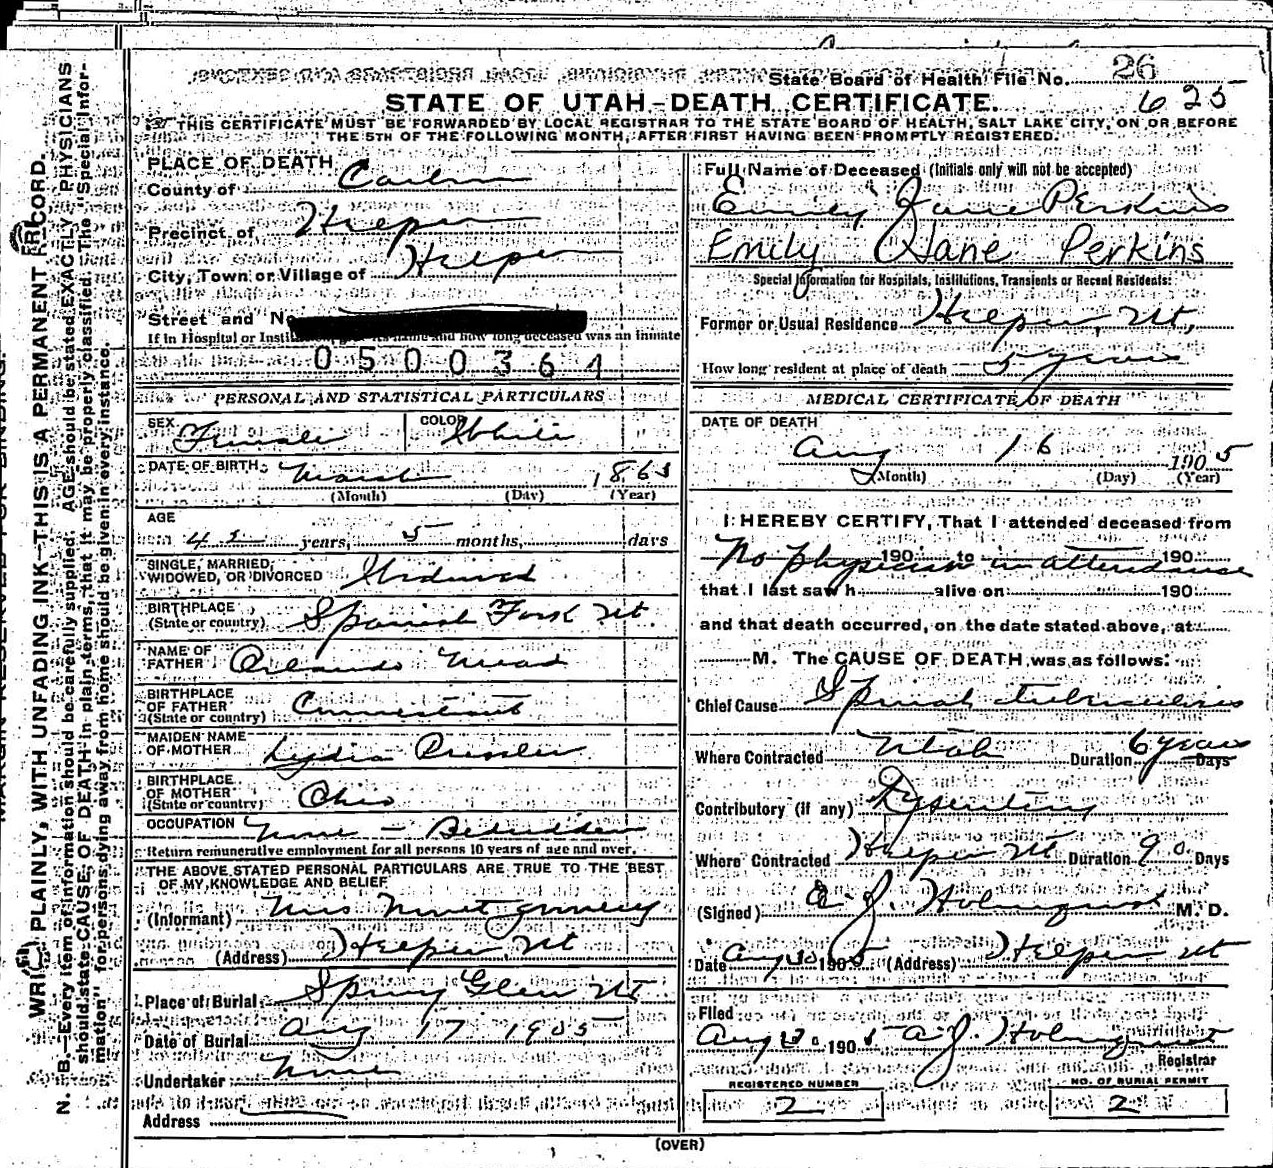 State Board of Health File No. 26
625
STATE OF UTAH—DEATH CERTIFICATE.
THIS CERTIFICATE MUST BE FORWARDED BY LOCAL REGISTRAR TO THE STATE BOARD OF HEALTH, SALT LAKE CITY, ON OR BEFORE
THE 5TH OF THE FOLLOWING MONTH, AFTER FIRST HAVING BEEN PROMPTLY REGISTERED.
WRITE PLAINLY, WITH UNFADING INK—THIS IS A PERMANENT RECORD.
N. B.—Every item of information should be carefully supplied. AGE should be stated EXACTLY. PHYSICIANS
should state CAUSE OF DEATH in plain terms, that it may be properly classified. The "Special Infor-
mation" for persons dying away from home should be given in every instance.
PLACE OF DEATH
County of Carbon
Precinct of Helper
City, Town or Village of Helper
Street and No.
If in Hospital or name and how long deceased was an inmate
0500361
PERSONAL AND STATISTICAL PARTICULARS
SEX Female COLOR White
DATE OF BIRTH March 1863
(Month) (Day) (Year)
AGE
42 years, 5 months, days
SINGLE, MARRIED,
WIDOWED, OR DIVORCED Widowed
BIRTHPLACE
(State or country) Spanish Fork Ut.
NAME OF
FATHER Orlando Mead
BIRTHPLACE
OF FATHER
(State or country) Connecticut
MAIDEN NAME
OF MOTHER Lydia
BIRTHPLACE
OF MOTHER
(State or country) Ohio
OCCUPATION None —
Return remunerative employment for all persons 10 years of age and over.
THE ABOVE STATED PERSONAL PARTICULARS ARE TRUE TO THE BEST
OF MY KNOWLEDGE AND BELIEF
(Informant) Mrs Montgomery
(Address) Helper, Ut
Place of Burial Spring Glen Ut.
Date of Burial Aug. 17 1905
Undertaker None
Address
Full Name of Deceased (Initials only will not be accepted)
Emily Jane Perkins
Emily Jane Perkins
Special Information for Hospitals, Institutions, Transients or Recent Residents:
Former or Usual Residence Helper, Ut,
How long resident at place of death 5 years
MEDICAL CERTIFICATE OF DEATH
DATE OF DEATH
Aug 16 1905
(Month) (Day) (Year)
I HEREBY CERTIFY, That I attended deceased from
No physician in attendance 190 to 190
that I last saw h alive on 190
and that death occurred, on the date stated above, at
M. The CAUSE OF DEATH was as follows:
Chief Cause Spinal tuberculosis
Where Contracted Utah Duration 6 years Days
Contributory (if any) Dysentery
Where Contracted Helper Ut Duration 90 Days
(Signed) A. J. Holmquist M. D.
Date Aug 20 1905 (Address) Helper Ut
Filed
Aug 20 1905 A. J. Holmquist
Registrar
REGISTERED NUMBER
2
NO. OF BURIAL PERMIT
2
(OVER)